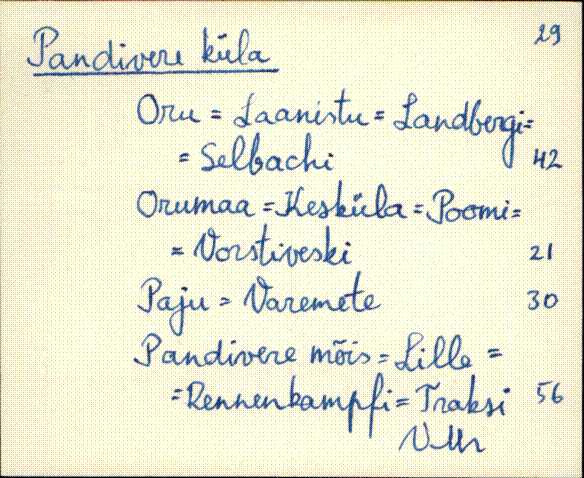 29
Pandivere küla
Oru = Laanistu = Landbergi =
= Selbachi 42
Orumaa = Kesküla = Poomi =
= Vorstiveski 21
Paju = Varemete 30
Pandivere mõis = Lille =
= Rennenkampfi = Traksi 56